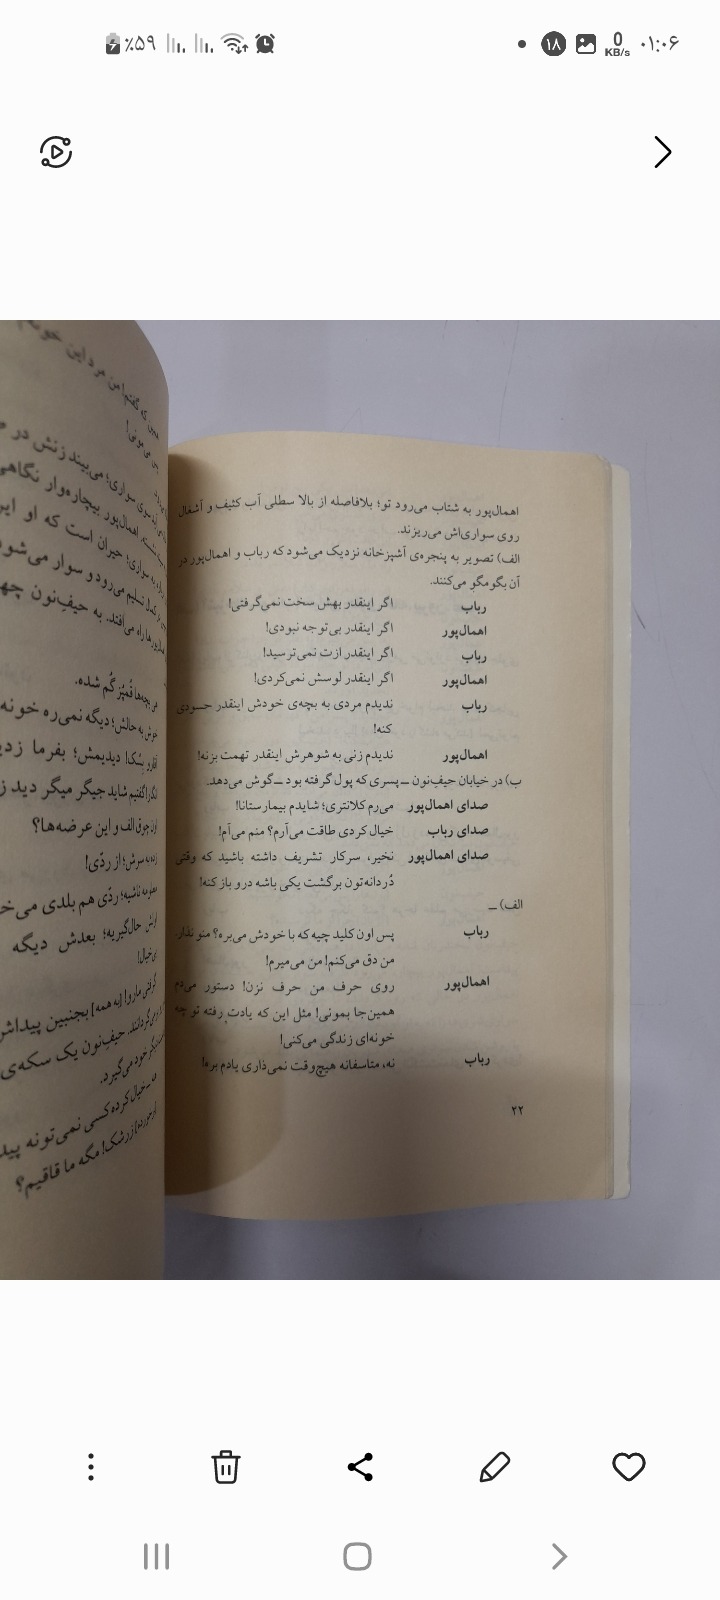 ٪۵۹
۱۸
0
KB/s
۰۱:۰۶
اهمال‌پور به شتاب می‌رود تو؛ بلافاصله از بالا سطلی آب کثیف و آشغال
روی سواری‌اش می‌ریزند.
الف) تصویر به پنجره‌ی آشپزخانه نزدیک می‌شود که رباب و اهمال‌پور در
آن بگومگو می‌کنند.
رباب اگر اینقدر بهش سخت نمی‌گرفتی!
اهمال‌پور اگر اینقدر بی‌توجه نبودی!
رباب اگر اینقدر ازت نمی‌ترسید!
اهمال‌پور اگر اینقدر لوسش نمی‌کردی!
رباب ندیدم مردی به بچه‌ی خودش اینقدر حسودی
کنه!
اهمال‌پور ندیدم زنی به شوهرش اینقدر تهمت بزنه!
ب) در خیابان حیف‌نون ــ پسری که پول گرفته بود ــ گوش می‌دهد.
صدای اهمال‌پور می‌رم کلانتری؛ شایدم بیمارستانا!
صدای رباب خیال کردی طاقت می‌آرم؟ منم می‌آم!
صدای اهمال‌پور نخیر، سرکار تشریف داشته باشید که وقتی
دُردانه‌تون برگشت یکی باشه درو باز کنه!
الف) ــ
رباب پس اون کلید چیه که با خودش می‌بره؟ منو نذار.
من دق می‌کنم! من می‌میرم!
اهمال‌پور روی حرف من حرف نزن! دستور می‌دم
همین‌جا بمونی! مثل این که یادت رفته تو چه
خونه‌ای زندگی می‌کنی!
رباب نه، متاسفانه هیچ‌وقت نمی‌ذاری یادم بره!
۲۲
که گفتم! من مرد این
سوی سواری؛ می‌بیند زنش در
اهمال‌پور بیچاره‌وار نگاهی
سواری؛ حیران است که او
تسلیم می‌رود و سوار می‌شود
راه می‌افتد. به حیف‌نون
بچه‌ها قُمپُز گُم شده.
خوش به حالش؛ دیگه نمی‌ره خونه
دیدیمش؛ بفرما
گفتیم شاید جیگر میگر دید
الف و این عرضه‌ها؟
سرش؛ از ردّی!
ناشیه؛ ردّی هم بلدی
حال‌گیریه؛ بعدش دیگه
بی‌خیال!
مارو! [به همه] بجنبین
حیف‌نون یک سکه‌ی
خود می‌گیرد.
خیال کرده کسی نمی‌تونه
زرشک! مگه ما قاقیم؟